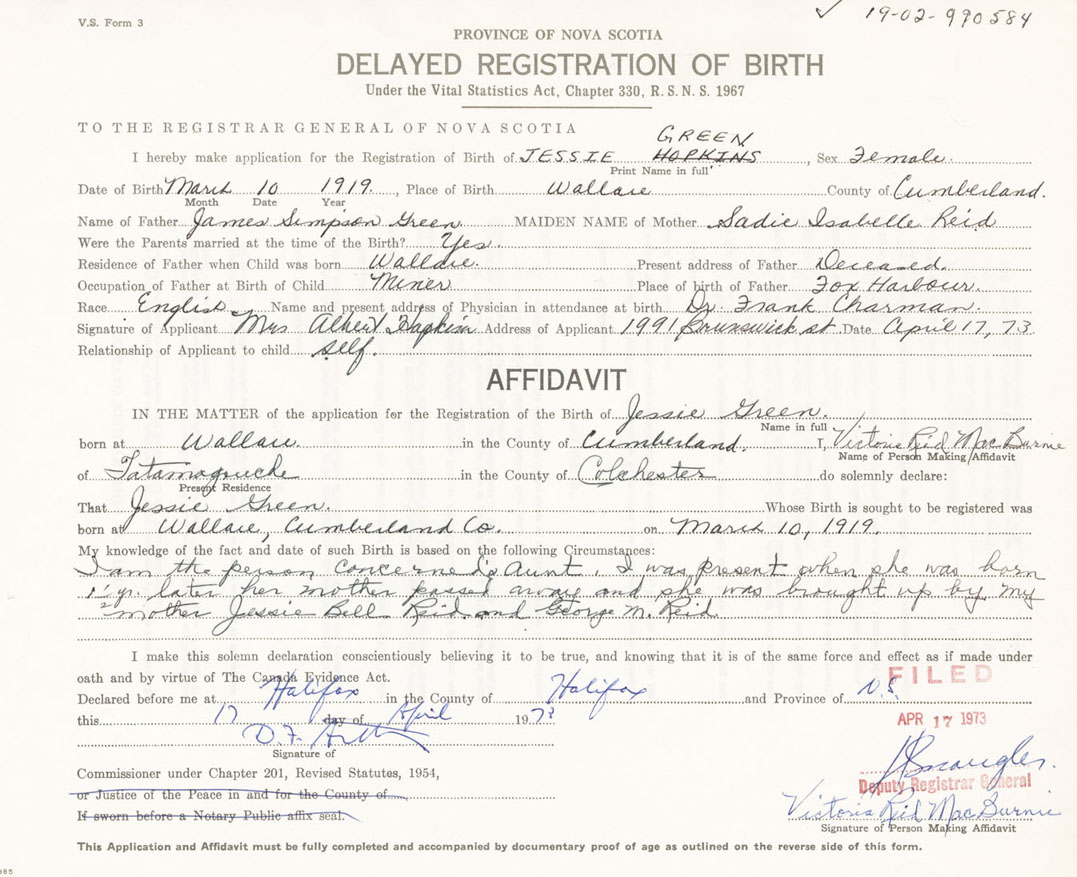 V.S. Form 3
✓ 19-02-990584
PROVINCE OF NOVA SCOTIA
DELAYED REGISTRATION OF BIRTH
Under the Vital Statistics Act, Chapter 330, R. S. N. S. 1967
TO THE REGISTRAR GENERAL OF NOVA SCOTIA
GREEN
I hereby make application for the Registration of Birth of JESSIE HOPKINS, Sex Female.
Print Name in full
Date of Birth March 10 1919, Place of Birth Wallace County of Cumberland.
Month Date Year
Name of Father James Simpson Green MAIDEN NAME of Mother Sadie Isabelle Reid
Were the Parents married at the time of the Birth? Yes.
Residence of Father when Child was born Wallace. Present address of Father Deceased.
Occupation of Father at Birth of Child Miner Place of birth of Father Fox Harbour.
Race English Name and present address of Physician in attendance at birth Dr. Frank Charman.
Signature of Applicant Mrs Albert Hopkins Address of Applicant 1991 Brunswick st. Date April 17, 73
Relationship of Applicant to child self.
AFFIDAVIT
IN THE MATTER of the application for the Registration of the Birth of Jessie Green.
Name in full
born at Wallace. in the County of Cumberland. I, Victoria Reid MacBurnie
Name of Person Making Affidavit
of Tatamagouche in the County of Colchester do solemnly declare:
Present Residence
That Jessie Green. Whose Birth is sought to be registered was
born at Wallace, Cumberland Co. on March 10, 1919.
My knowledge of the fact and date of such Birth is based on the following Circumstances:
I am the person concerned's Aunt. I was present when she was born
1½ yr. later her mother passed away and she was brought up by my
mother Jessie Bell Reid and George M. Reid
I make this solemn declaration conscientiously believing it to be true, and knowing that it is of the same force and effect as if made under
oath and by virtue of The Canada Evidence Act.
FILED
Declared before me at Halifax in the County of Halifax and Province of N.S.
this 17 day of April 1973
APR 17 1973
D.F.
Signature of
Commissioner under Chapter 201, Revised Statutes, 1954,
Deputy Registrar General
or Justice of the Peace in and for the County of
Victoria Reid MacBurnie
If sworn before a Notary Public affix seal.
Signature of Person Making Affidavit
This Application and Affidavit must be fully completed and accompanied by documentary proof of age as outlined on the reverse side of this form.